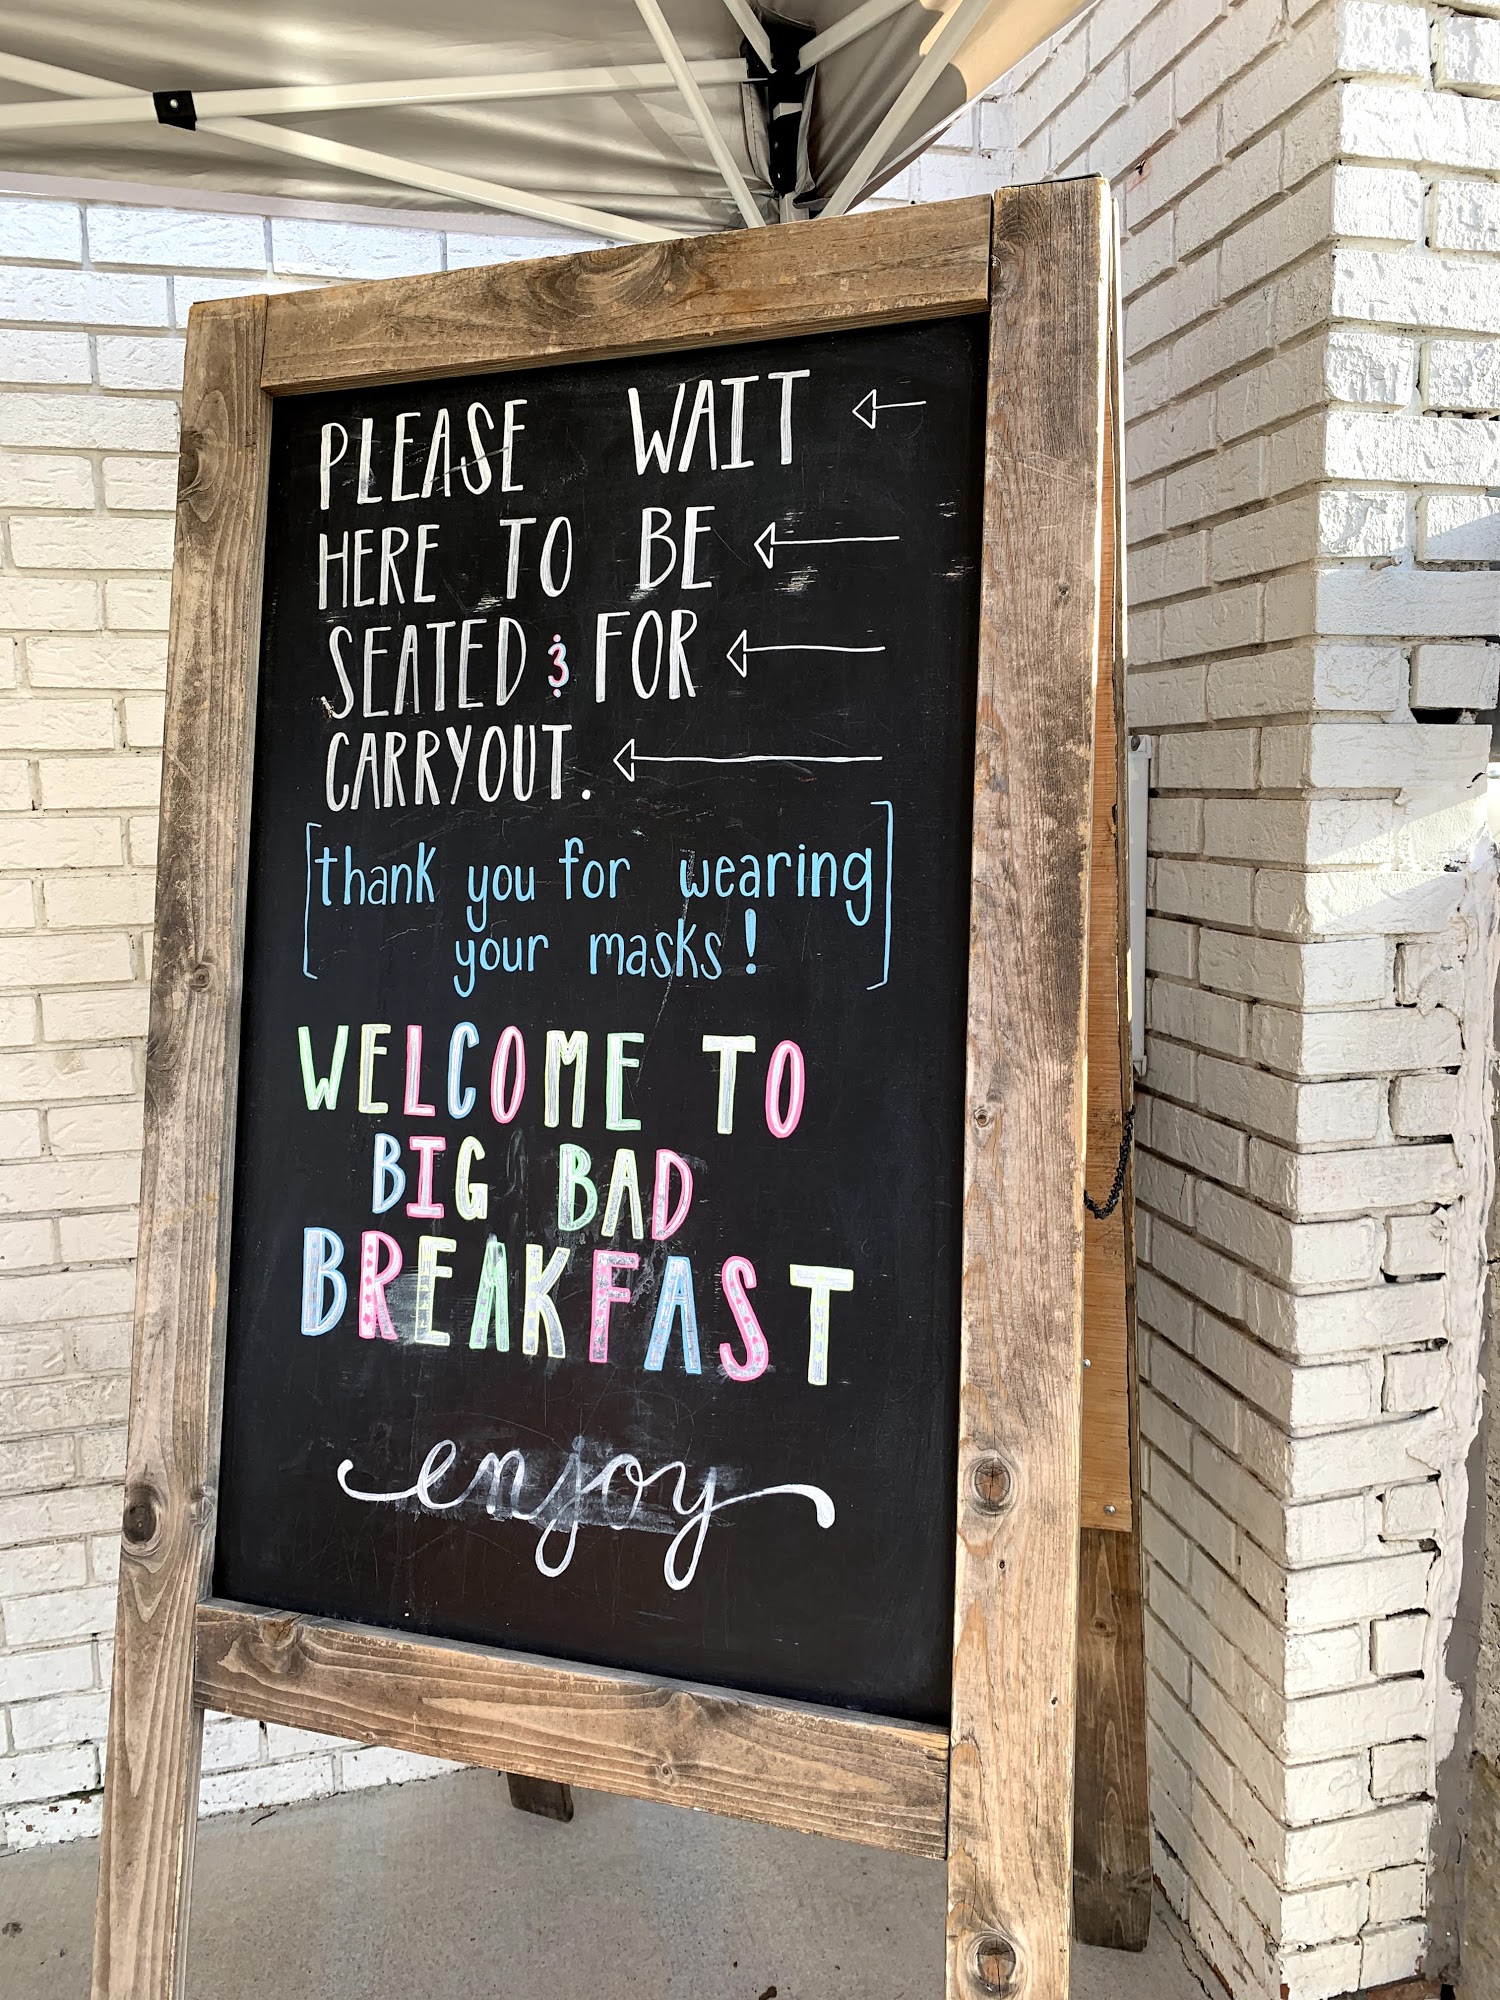 PLEASE WAIT
HERE TO BE
SEATED & FOR
CARRYOUT.
[thank you for wearing
your masks!]
WELCOME TO
BIG BAD
BREAKFAST
enjoy